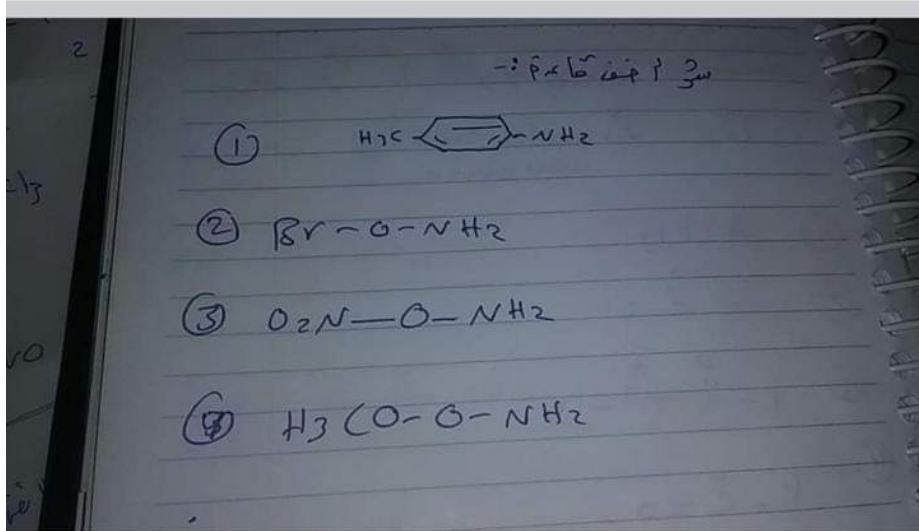 2
س3 / اضعف قاعدة :-
① H3C-⌬-NH2
② Br-O-NH2
③ O2N-O-NH2
④ H3CO-O-NH2